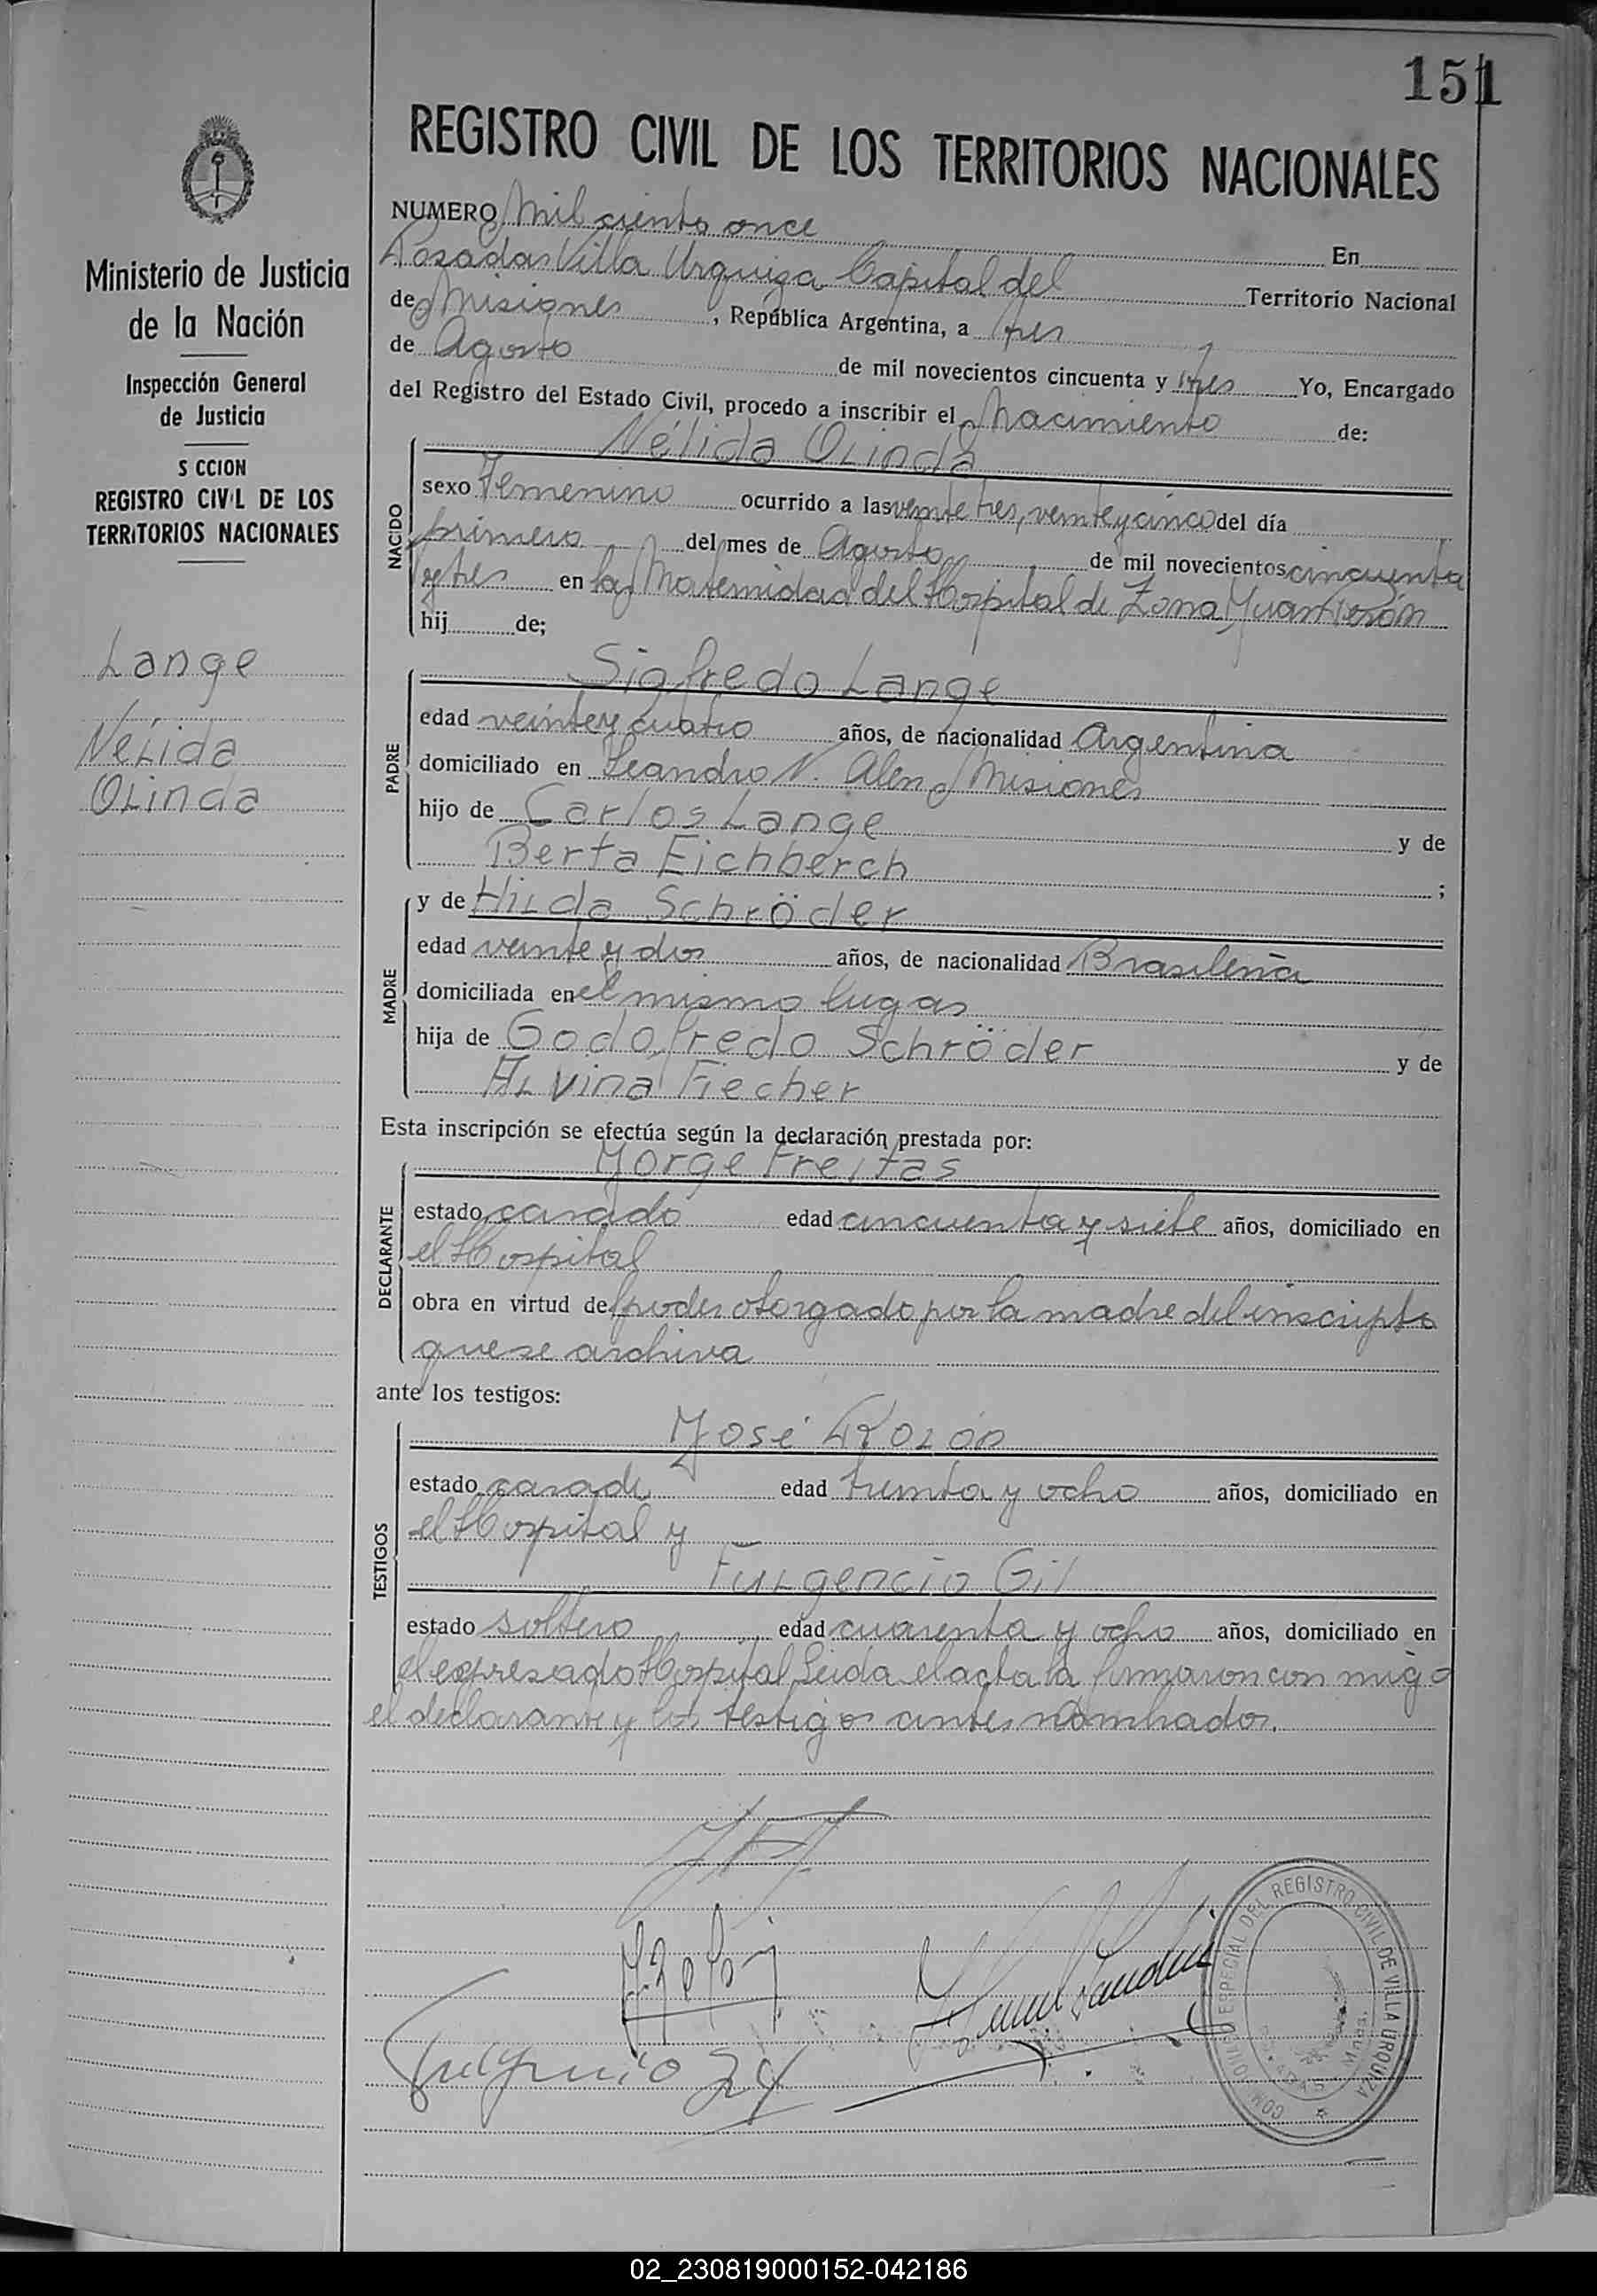 151
REGISTRO CIVIL DE LOS TERRITORIOS NACIONALES
Ministerio de Justicia
de la Nación
Inspección General
de Justicia
S CCION
REGISTRO CIVIL DE LOS
TERRITORIOS NACIONALES
Lange
Nélida
Olinda
NUMERO Mil ciento once En
Posadas Villa Urquiza Capital del Territorio Nacional
de Misiones, República Argentina, a tres
de Agosto de mil novecientos cincuenta y tres Yo, Encargado
del Registro del Estado Civil, procedo a inscribir el Nacimiento de:
Nélida Olinda
NACIDO
sexo Femenino ocurrido a las veinte tres, veinte y cinco del día
primero del mes de Agosto de mil novecientos cincuenta
y tres en la Maternidad del Hospital de Zona Juan Perón
hij de;
PADRE
Sigfredo Lange
edad veinte y cuatro años, de nacionalidad Argentina
domiciliado en Leandro N. Alen Misiones
hijo de Carlos Lange y de
Berta Eichberch ;
MADRE
y de Hilda Schröder
edad veinte y dos años, de nacionalidad Brasileña
domiciliada en el mismo lugar
hija de Godofredo Schröder y de
Alvina Fiecher
Esta inscripción se efectúa según la declaración prestada por:
DECLARANTE
Jorge Freitas
estado casado edad cincuenta y siete años, domiciliado en
el Hospital
obra en virtud del poder otorgado por la madre del inscripto
que se archiva
ante los testigos:
TESTIGOS
José Rolón
estado casado edad treinta y ocho años, domiciliado en
el Hospital y
Fulgencio Gil
estado soltero edad cuarenta y ocho años, domiciliado en
el expresado Hospital Leida el acta la firmaron con migo
el declarante y los testigos antes nombrados.
Fulgencio Gil
ESPECIAL DEL REGISTRO CIVIL DE VILLA URQUIZA
02_230819000152-042186